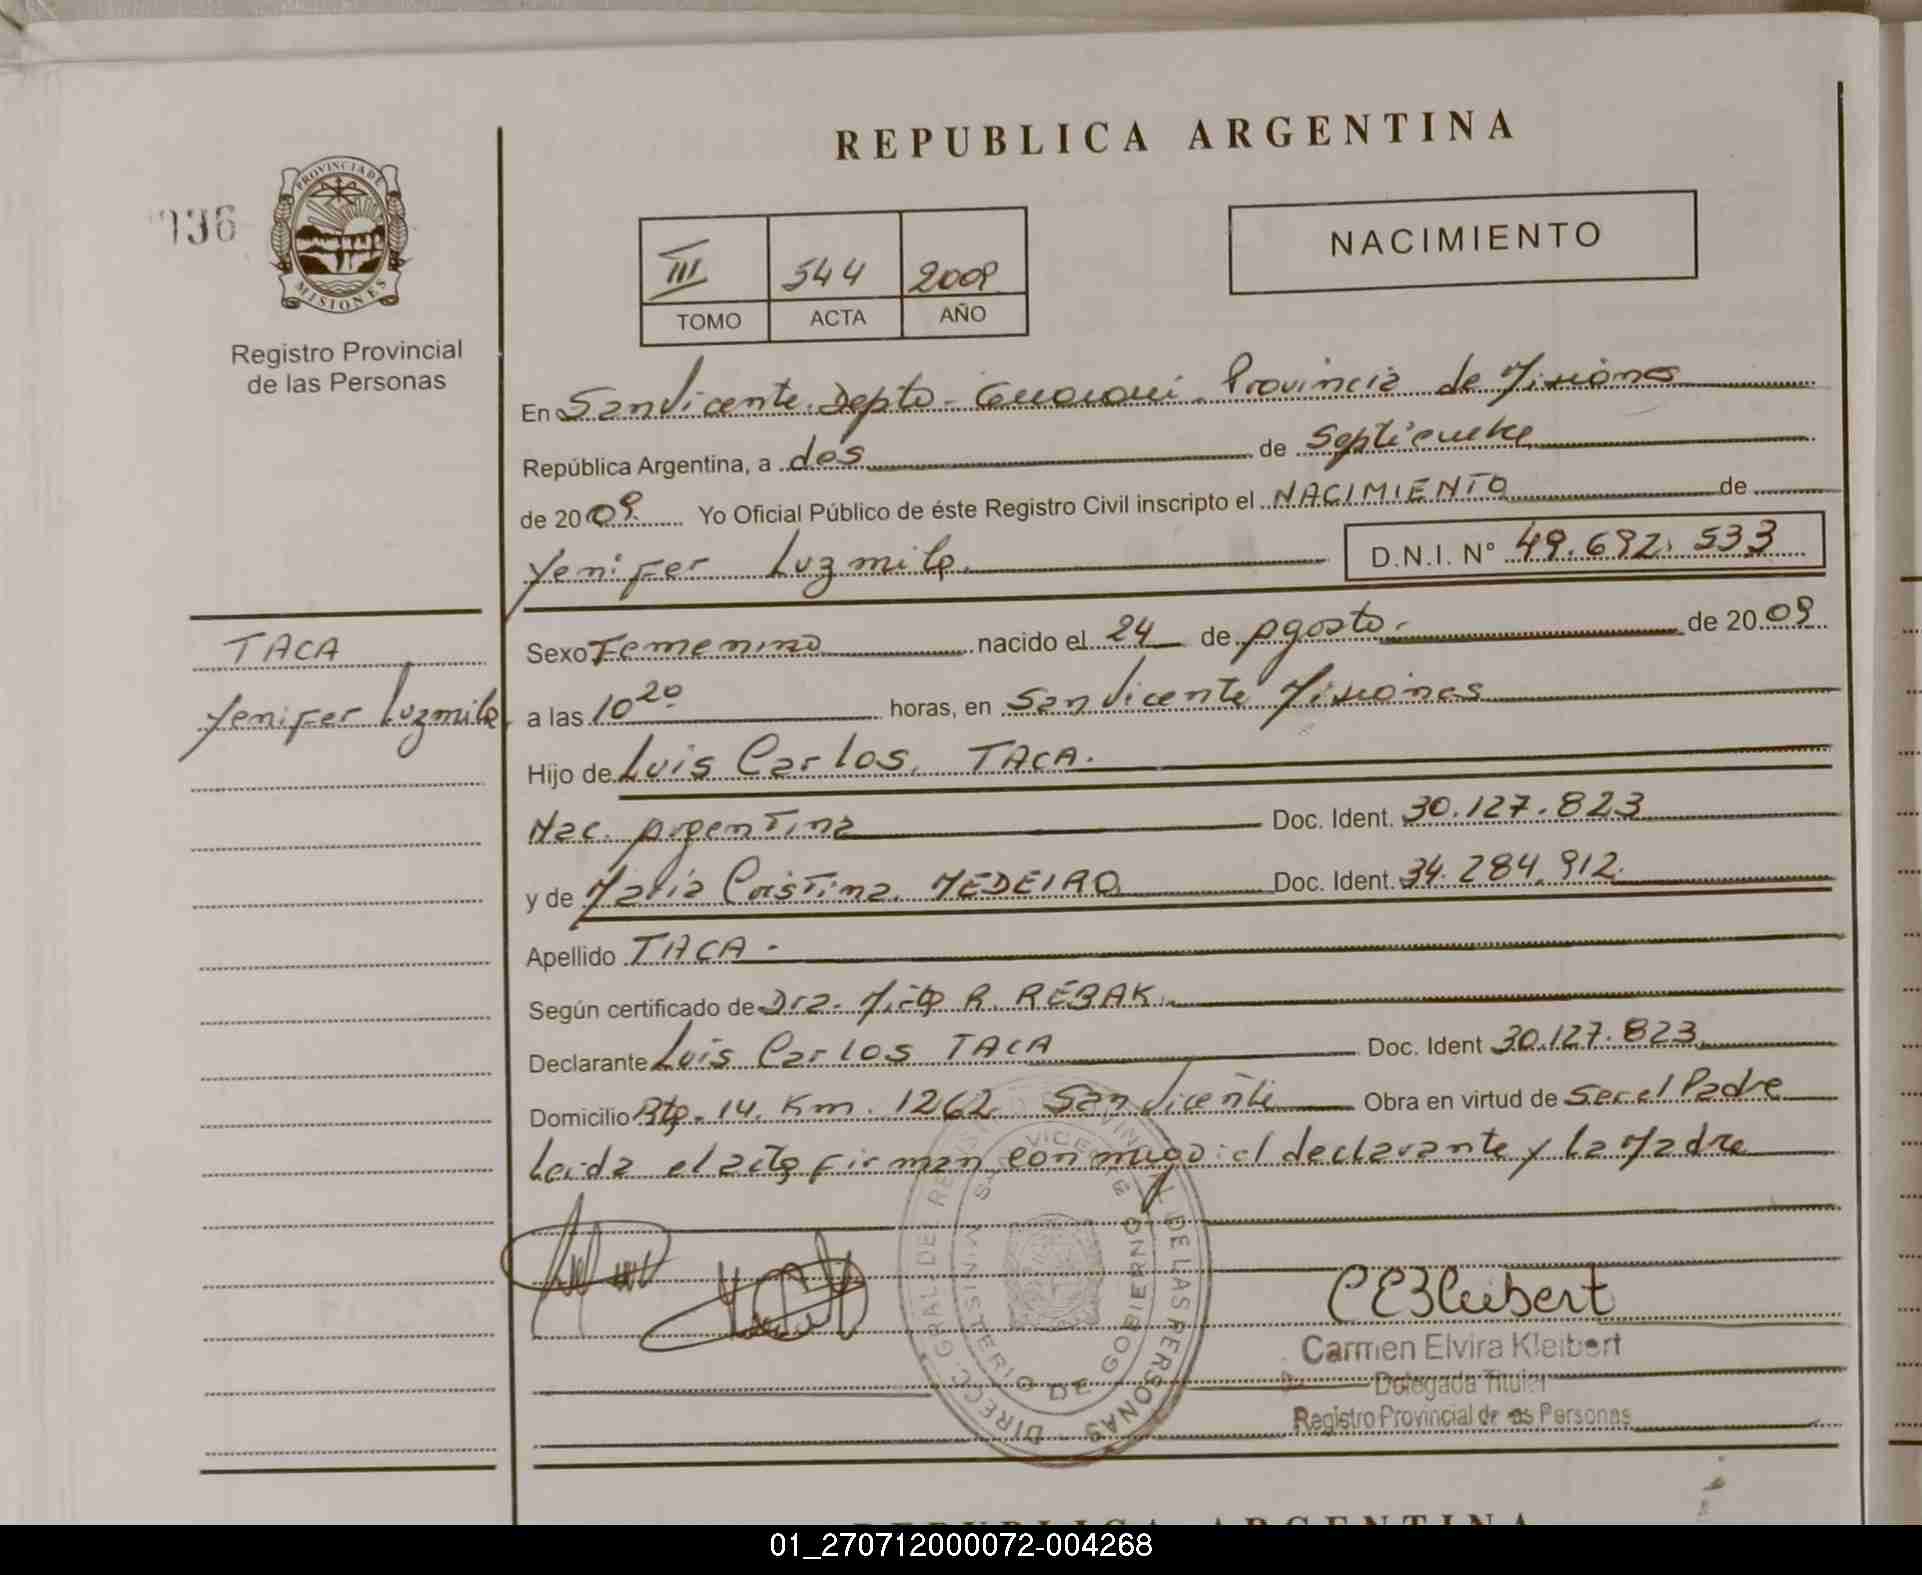 REPUBLICA ARGENTINA
136
PROVINCIA DE
MISIONES
Registro Provincial
de las Personas
III 544 2009
TOMO ACTA AÑO
NACIMIENTO
En San Vicente Depto - Guarani Provincia de Misiones
República Argentina, a dos de Septiembre
de 2009 Yo Oficial Público de éste Registro Civil inscripto el NACIMIENTO de
Yenifer Luzmila D.N.I. N° 49.692.533
TACA
Yenifer Luzmila
Sexo Femenino nacido el 24 de Agosto de 2009
a las 10 20 horas, en San Vicente Misiones
Hijo de Luis Carlos TACA.
Nac. Argentina Doc. Ident. 30.127.823
y de Maria Cristina MEDEIRO Doc. Ident. 34.284.912
Apellido TACA -
Según certificado de Dra. R. REBAK
Declarante Luis Carlos TACA Doc. Ident 30.127.823
Domicilio Rta. 14 Km. 1262 San Vicente Obra en virtud de Ser el Padre
Leida el acta firman conmigo el declarante y la Madre
DIRECC. GRAL DEL REGISTRO PROVINCIAL DE LAS PERSONAS
MINISTERIO DE GOBIERNO
SAN VICENTE
CEKleibert
Carmen Elvira Kleibert
Delegada Titular
Registro Provincial de las Personas
REPUBLICA ARGENTINA
01_270712000072-004268